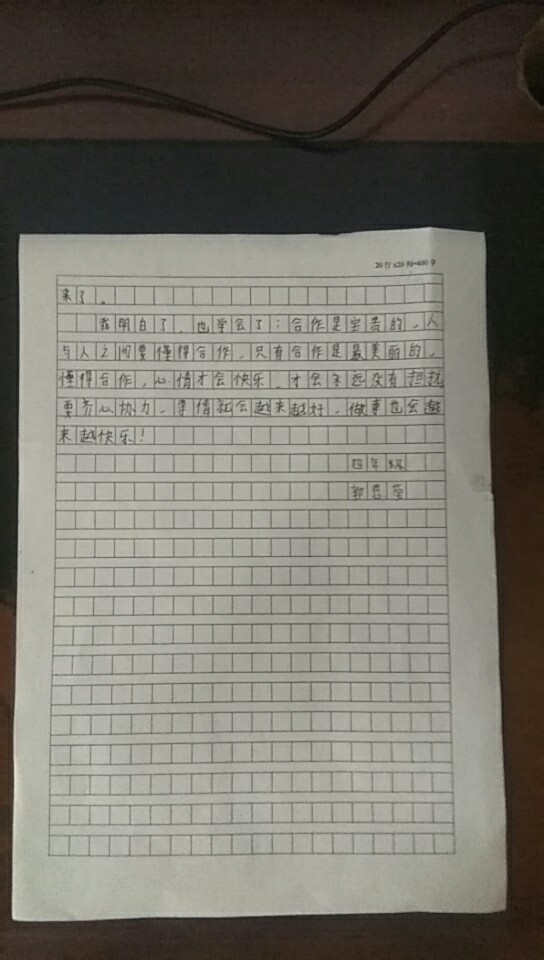 20行×20列=400字
来了。
我明白了,也学会了:合作是宝贵的,人
与人之间要懂得合作,只有合作是最美丽的,
懂得合作,心情才会快乐,才会永远没有
要齐心协力,事情就会越来越好,做事也会越
来越快乐!
四年级
郭